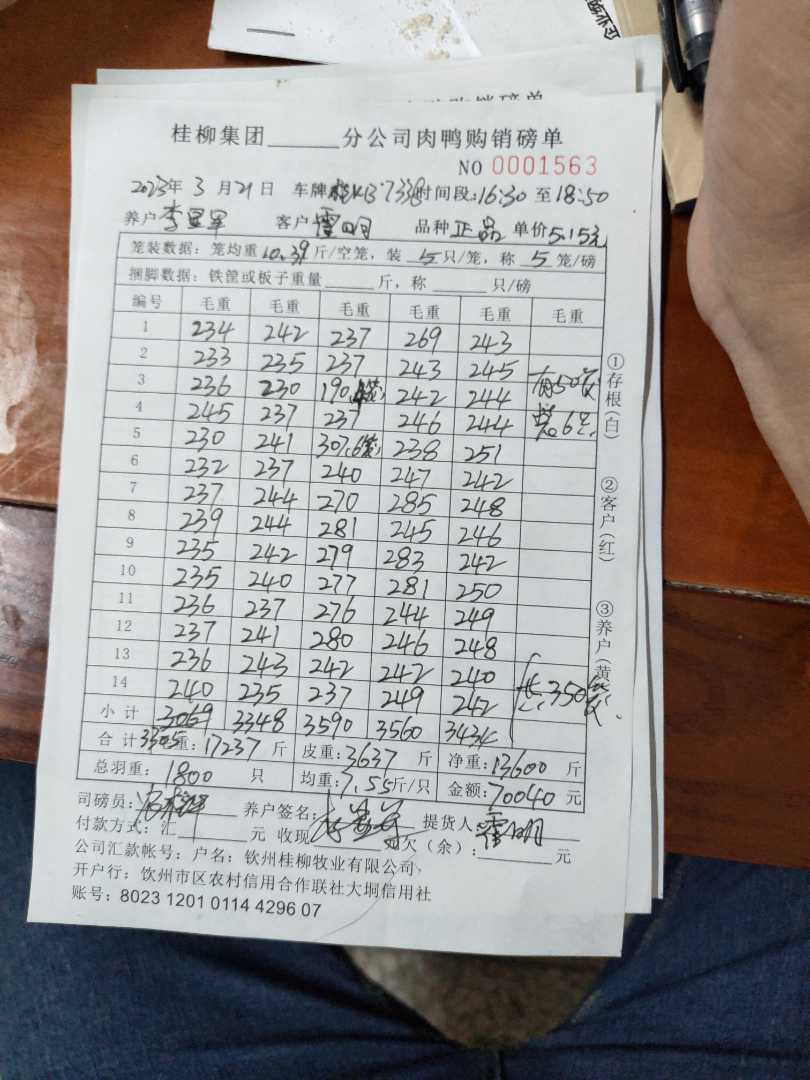 桂柳集团______分公司肉鸭购销磅单
NO 0001563
2023年 3 月 21 日 车牌 时间段:16:30 至 18:50
养户 李 客户 雷明 品种 正品 单价 5.15元
笼装数据：笼均重 10.39 斤/空笼，装 5 只/笼，称 5 笼/磅
捆脚数据：铁筐或板子重量______斤，称______只/磅
编号 毛重 毛重 毛重 毛重 毛重 毛重
1 234 242 237 269 243
2 233 235 237 243 245
3 236 230 190 242 244 有50笼
4 245 237 237 246 244 装6只
5 230 241 307 238 251
6 232 237 240 247 242
7 237 244 270 285 248
8 239 244 281 245 246
9 235 242 279 283 242
10 235 240 277 281 250
11 236 237 276 244 249
12 237 241 280 246 248
13 236 243 242 242 240
14 240 235 237 249 242 共350笼
小 计 3069 3348 3590 3560 3434
3305
合 计 重：17237 斤 皮重：3637 斤 净重：13600 斤
总羽重：1800 只 均重：7.55斤/只 金额：70040 元
司磅员： 养户签名： 提货人：雷明
付款方式：汇______元 收现 欠（余）：______元
公司汇款帐号：户名：钦州桂柳牧业有限公司
开户行：钦州市区农村信用合作联社大垌信用社
账号：8023 1201 0114 4296 07
①存根(白)
②客户(红)
③养户(黄